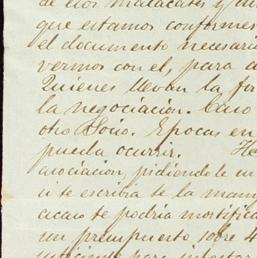 de dos malacates y
que estamos conformes
el documento necesari
vermos con el, para a
Quienes llevan la for
la negociación. Caso
otro Socio. Epocas en
pueda ocurrir. He
asociacion, pidiendole
te escribia de la man
acaso te podria mortific
un presupuesto sobre 4